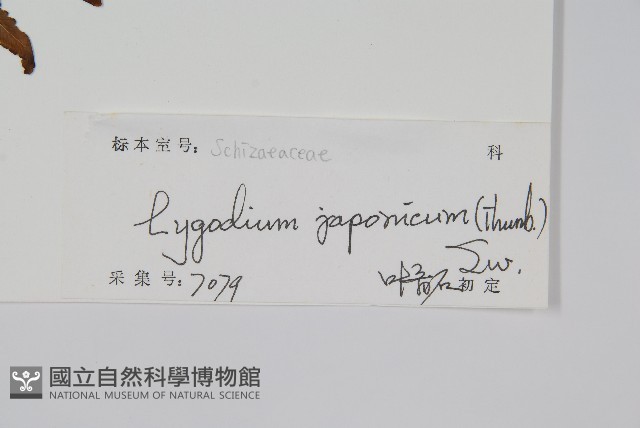 标本室号: Schizaeaceae 科
Lygodium japonicum (Thunb.)
Sw.
采集号: 7079 初定
國立自然科學博物館
NATIONAL MUSEUM OF NATURAL SCIENCE